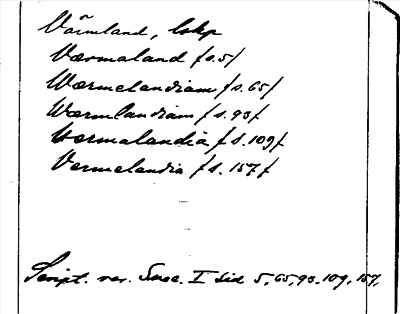 Värmland, lskp
Værmaland /s.5/
Wærmelandiam /s.65/
Wærmlandiam /s.93/
Wermalandia /s.109/
Vermelandia /s.157/
Script. rer. Suec. I sid 5, 65, 93, 109, 157.